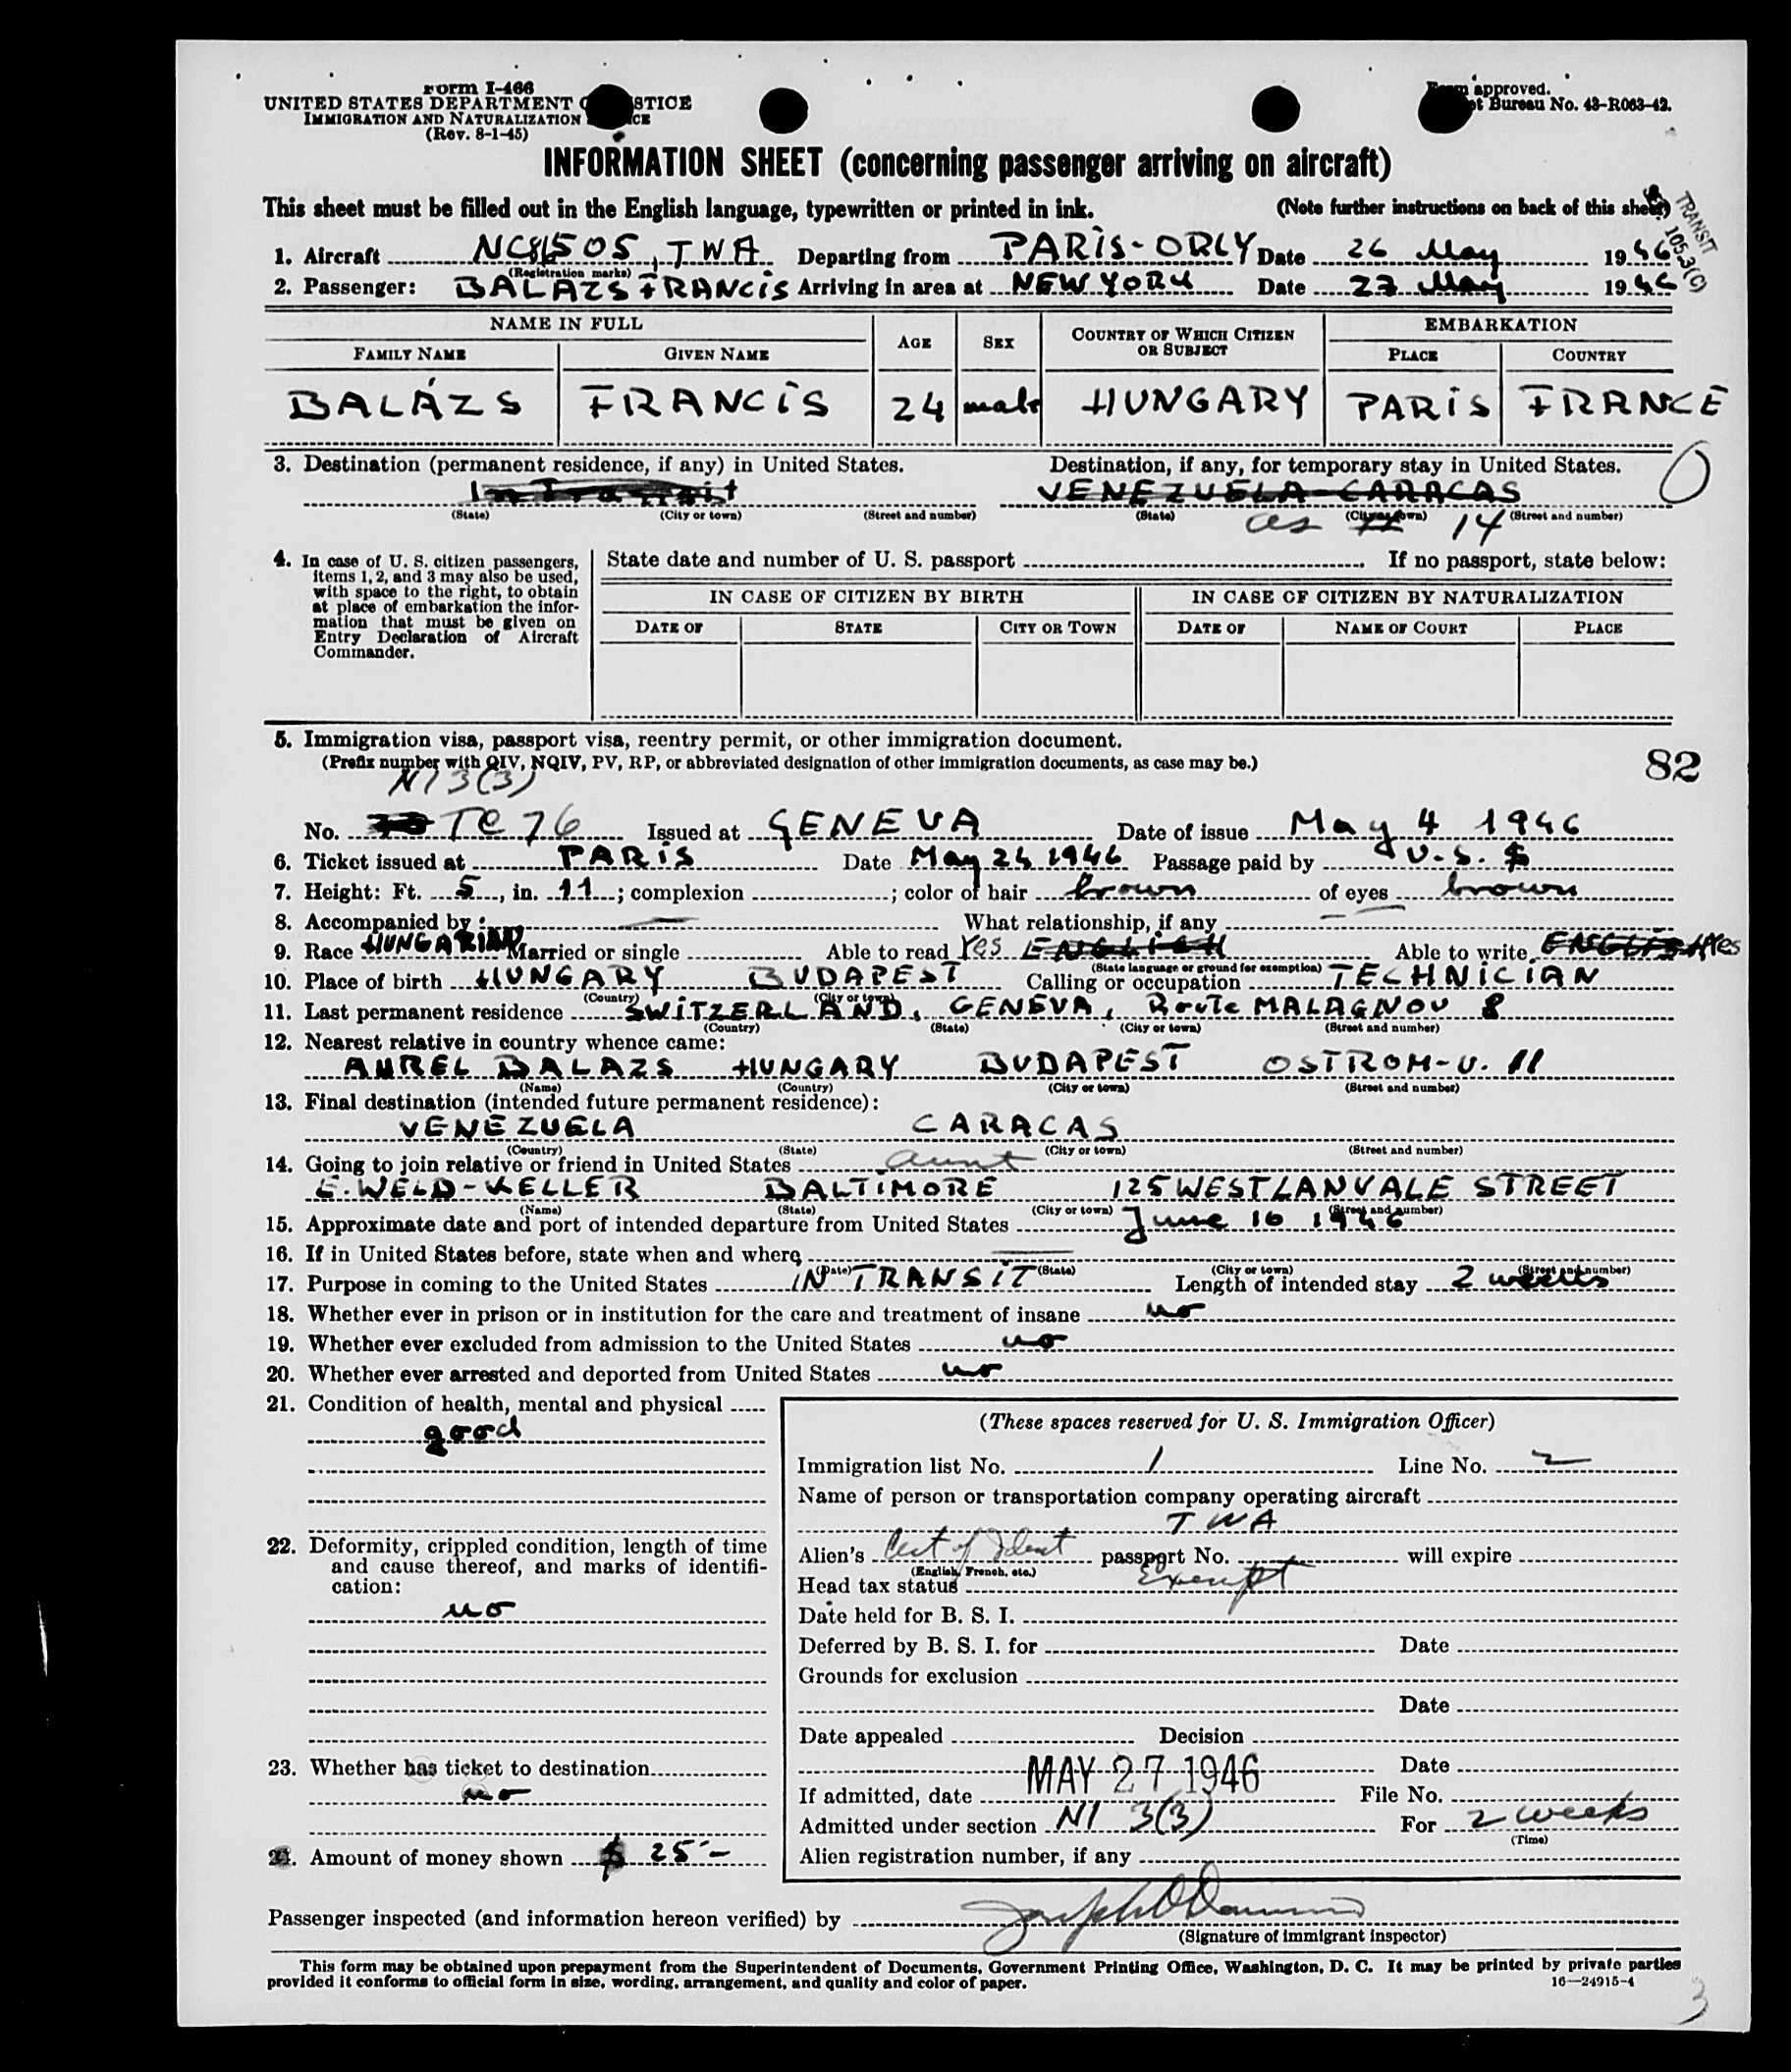 Form I-466
UNITED STATES DEPARTMENT STICE
IMMIGRATION AND NATURALIZATION CE
(Rev. 8-1-45)
approved.
Bureau No. 43-R063-42.
INFORMATION SHEET (concerning passenger arriving on aircraft)
This sheet must be filled out in the English language, typewritten or printed in ink. (Note further instructions on back of this sheet)
TRANSIT
105.3(C)
1. Aircraft NC81505, TWA Departing from PARIS-ORLY Date 26 May 1946
(Registration marks)
2. Passenger: BALAZS FRANCIS Arriving in area at NEW YORK Date 27 May 1946
NAME IN FULL AGE SEX COUNTRY OF WHICH CITIZEN OR SUBJECT EMBARKATION
FAMILY NAME GIVEN NAME PLACE COUNTRY
BALÁZS FRANCIS 24 male HUNGARY PARIS FRANCE
3. Destination (permanent residence, if any) in United States. Destination, if any, for temporary stay in United States.
In Transit VENEZUELA-CARACAS
(State) (City or town) (Street and number) (State) (City or town) (Street and number)
as 14
0
4. In case of U. S. citizen passengers, items 1, 2, and 3 may also be used, with space to the right, to obtain at place of embarkation the information that must be given on Entry Declaration of Aircraft Commander.
State date and number of U. S. passport . If no passport, state below:
IN CASE OF CITIZEN BY BIRTH IN CASE OF CITIZEN BY NATURALIZATION
DATE OF STATE CITY OR TOWN DATE OF NAME OF COURT PLACE
5. Immigration visa, passport visa, reentry permit, or other immigration document.
(Prefix number with QIV, NQIV, PV, RP, or abbreviated designation of other immigration documents, as case may be.)
82
NI 3(3)
No. TC 76 Issued at GENEVA Date of issue May 4 1946
6. Ticket issued at PARIS Date May 24 1946 Passage paid by U.S. $
7. Height: Ft. 5, in. 11; complexion ; color of hair brown of eyes brown
8. Accompanied by : — What relationship, if any —
9. Race HUNGARIAN Married or single Able to read Yes ENGLISH Able to write ENGLISH Yes
(State language or ground for exemption)
10. Place of birth HUNGARY BUDAPEST Calling or occupation TECHNICIAN
(Country) (City or town)
11. Last permanent residence SWITZERLAND, GENEVA, Route MALAGNOU 8
(Country) (State) (City or town) (Street and number)
12. Nearest relative in country whence came:
AUREL BALAZS HUNGARY BUDAPEST OSTROM-U. 11
(Name) (Country) (City or town) (Street and number)
13. Final destination (intended future permanent residence):
VENEZUELA CARACAS
(Country) (State) (City or town) (Street and number)
14. Going to join relative or friend in United States aunt
E. WELD-KELLER BALTIMORE 125 WEST LANVALE STREET
(Name) (State) (City or town) (Street and number)
15. Approximate date and port of intended departure from United States June 10 1946
16. If in United States before, state when and where —
(Date) (State) (City or town) (Street and number)
17. Purpose in coming to the United States IN TRANSIT Length of intended stay 2 weeks
18. Whether ever in prison or in institution for the care and treatment of insane no
19. Whether ever excluded from admission to the United States no
20. Whether ever arrested and deported from United States no
21. Condition of health, mental and physical
good
22. Deformity, crippled condition, length of time and cause thereof, and marks of identification:
no
23. Whether has ticket to destination
no
24. Amount of money shown $ 25-
(These spaces reserved for U. S. Immigration Officer)
Immigration list No. 1 Line No. 2
Name of person or transportation company operating aircraft
TWA
Alien's Cert of Ident passport No. will expire
(English, French, etc.)
Head tax status Exempt
Date held for B. S. I.
Deferred by B. S. I. for Date
Grounds for exclusion
Date
Date appealed Decision
Date
If admitted, date MAY 27 1946 File No.
Admitted under section NI 3(3) For 2 weeks
(Time)
Alien registration number, if any
Passenger inspected (and information hereon verified) by
(Signature of immigrant inspector)
This form may be obtained upon prepayment from the Superintendent of Documents, Government Printing Office, Washington, D. C. It may be printed by private parties
provided it conforms to official form in size, wording, arrangement, and quality and color of paper. 16—24915-4
3